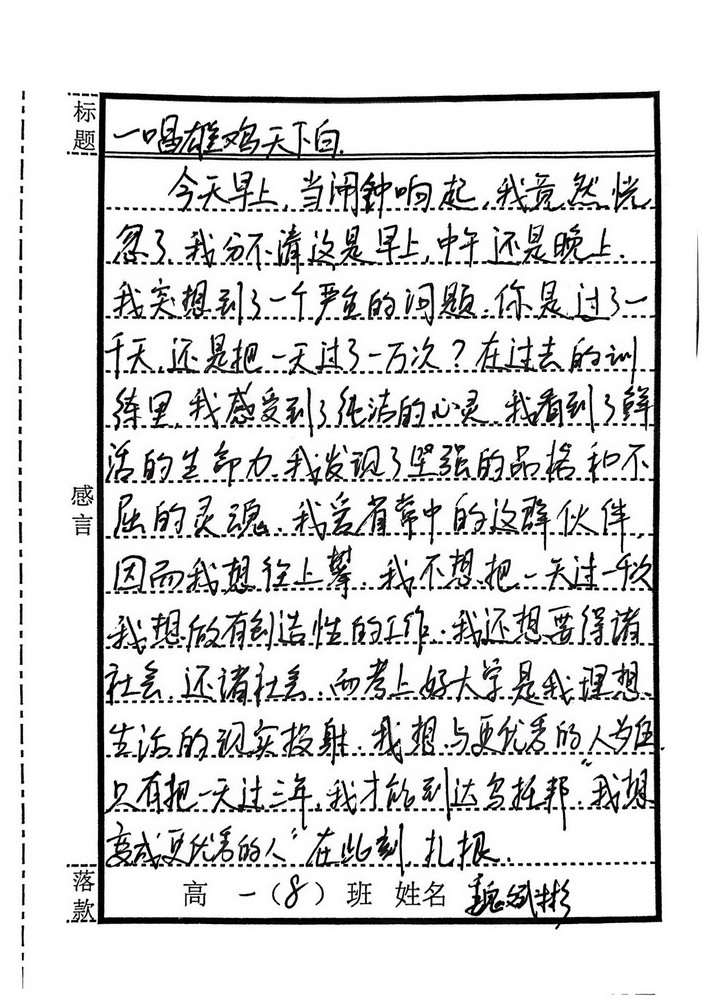 标题
一唱雄鸡天下白.
今天早上,当闹钟响起,我竟然恍
忽了,我分不清这是早上,中午还是晚上.
我突想到了一个严重的问题.你是过了一
千天,还是把一天过了一万次?在过去的训
练里,我感受到了纯洁的心灵.我看到了鲜
活的生命力.我发现了坚强的品格和不
屈的灵魂.我爱省常中的这群伙伴,
因而我想往上攀.我不想把一天过一千次
我想做有创造性的工作.我还想要得诸
社会,还诸社会.而考上好大学是我理想
生活的现实投射.我想与更优秀的人为伍.
只有把一天过三年,我才能到达乌托邦"我想
变成更优秀的人"在此刻,扎根.
感言
落款
高一(8)班 姓名 魏斌彬